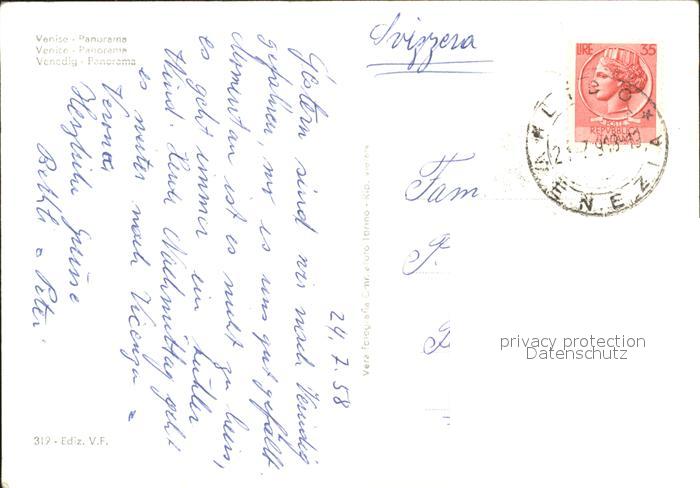 Venise - Panorama
Venice - Panorama
Venedig - Panorama
24.7.58
Gestern sind wir nach Venedig
gefahren, wo es uns gut gefällt.
Momentan ist es nicht zu heiss,
es geht immer ein kühler
Wind. Heute Nachmittag geht
es weiter nach Vicenza -
Verona
Herzliche Grüsse
Bethli - Peter.
319 - Ediz. V.F.
Vera fotografia
Svizzera
Fam.
LIRE 35
POSTE
VENEZIA
privacy protection
Datenschutz